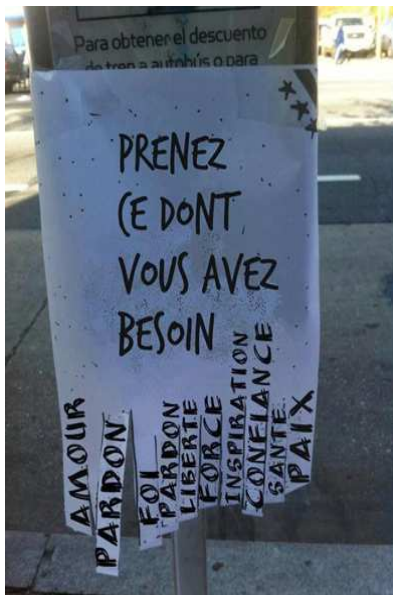 Para obtener el descuento
de tren a autobús o para
PRENEZ
CE DONT
VOUS AVEZ
BESOIN
AMOUR
PARDON
FOI
PARDON
LIBERTE
FORCE
INSPIRATION
CONFIANCE
SANTE
PAIX